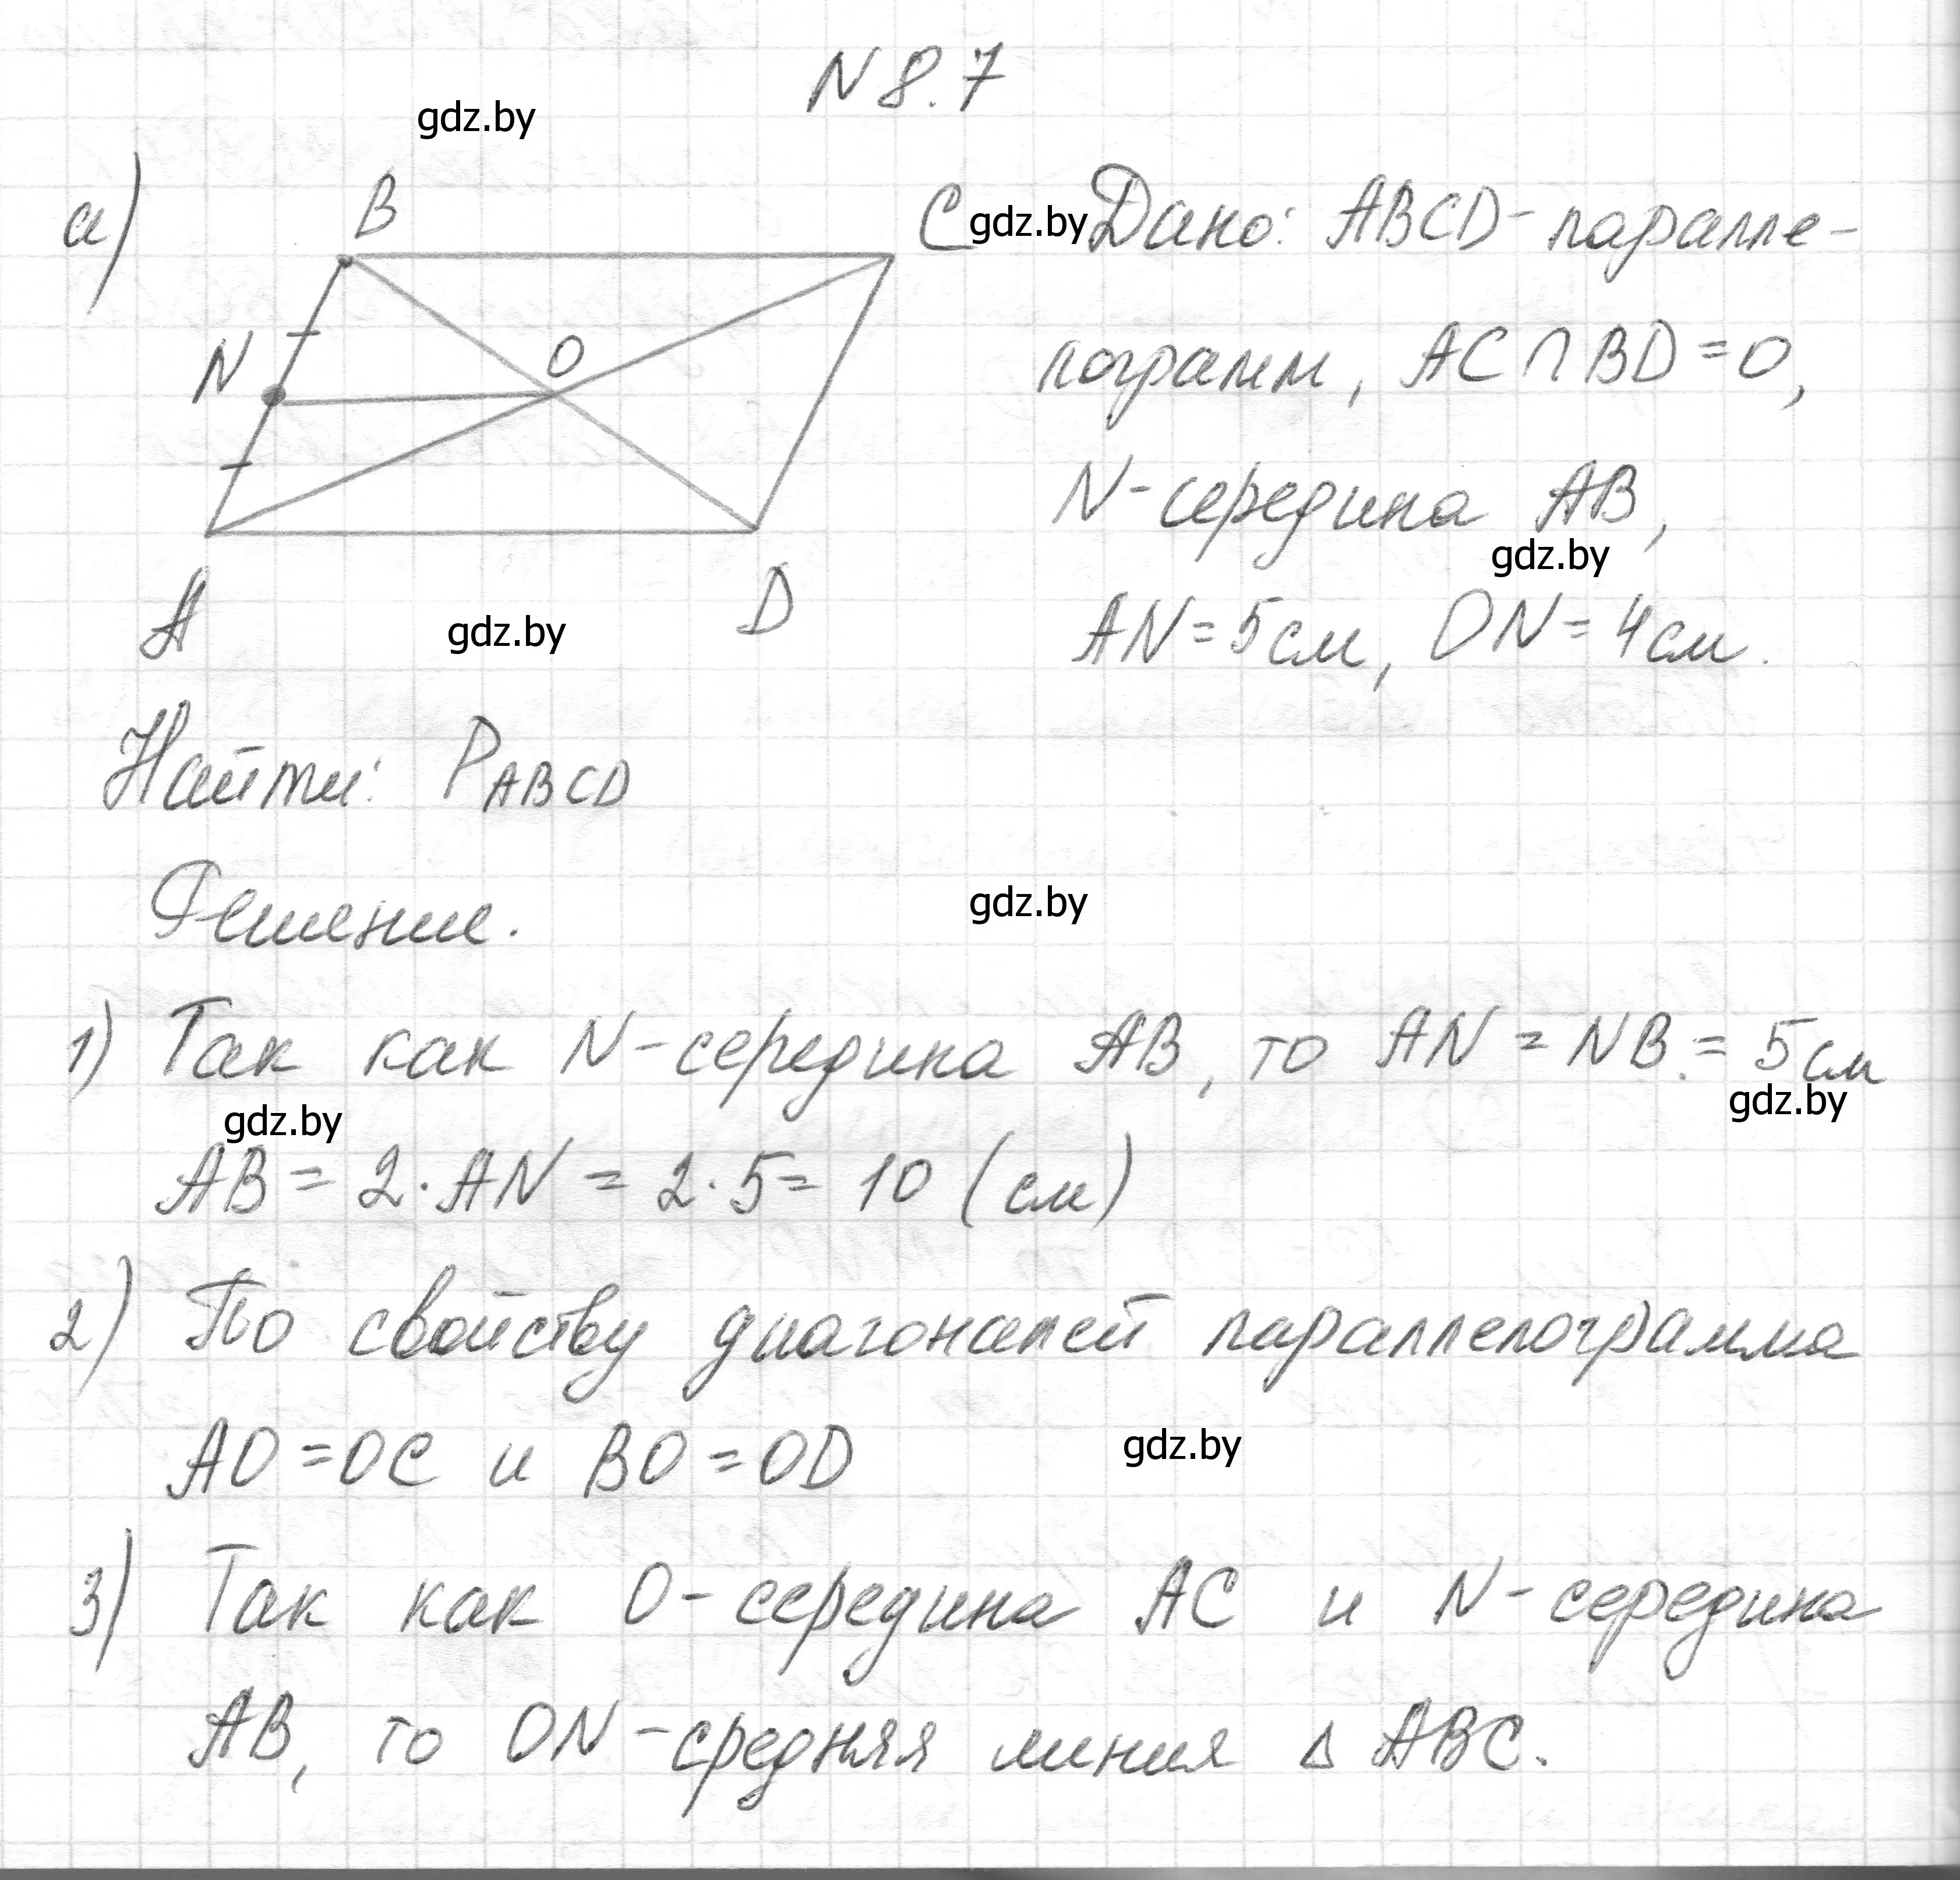 N 8.7
gdz.by
а)
B
C
gdz.by
Дано: ABCD- паралле-
N
O
лограмм, AC∩BD=O,
N-середина AB,
gdz.by
A
D
gdz.by
AN=5см, ON=4см.
Найти: PABCD
Решение.
gdz.by
1) Так как N-середина AB, то AN = NB = 5см
gdz.by
gdz.by
AB = 2·AN = 2·5= 10 (см)
2) По свойству диагоналей параллелограмма
AO=OC и BO=OD
gdz.by
3) Так как O-середина AC и N-середина
AB, то ON-средняя линия Δ ABC.